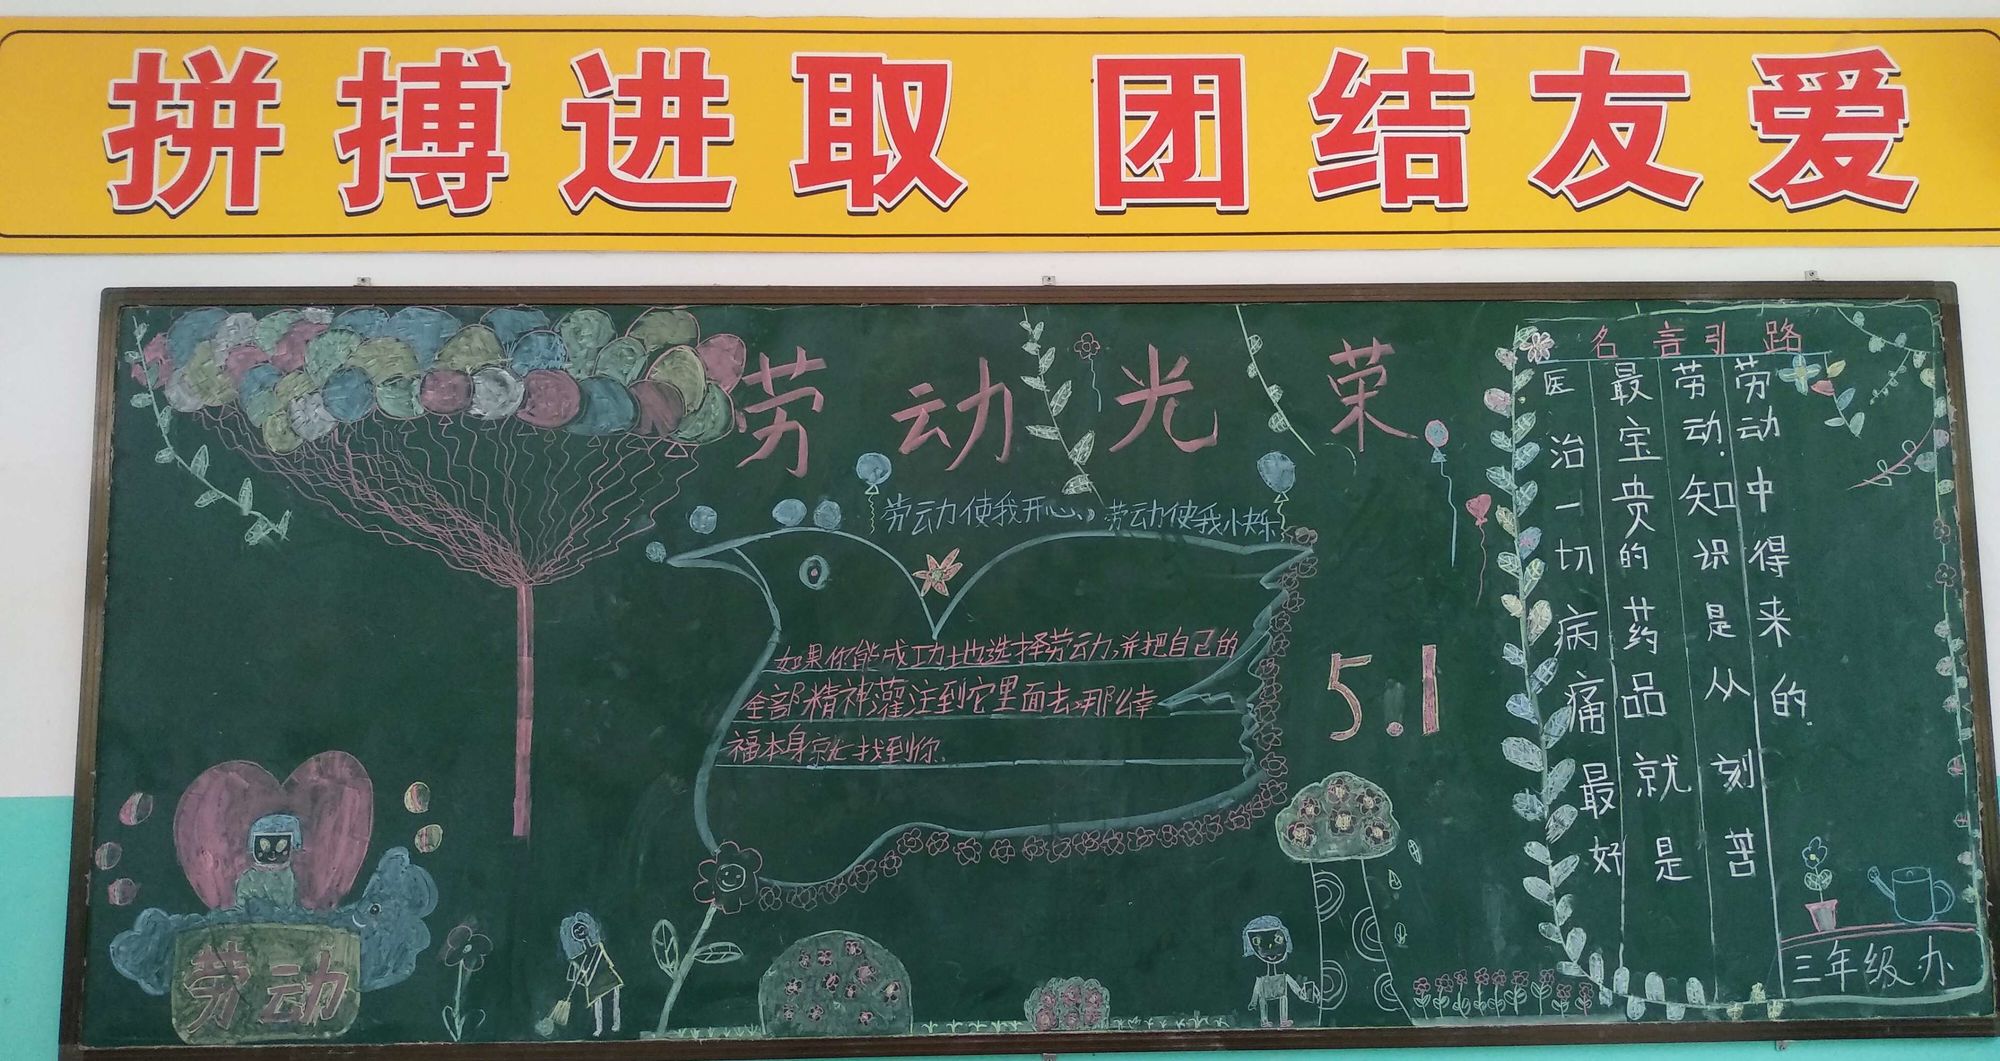 拼搏进取 团结友爱
劳动光荣
劳动使我开心，劳动使我快乐
如果你能成功地选择劳动,并把自己的
全部精神灌注到它里面去,那么幸
福本身就找到你.
5.1
劳动
名言引路
医治一切病痛最好
最宝贵的药品就是
劳动.知识是从刻苦
劳动中得来的.
三年级办